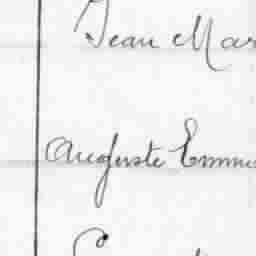 Jean Mar
Auguste Emma